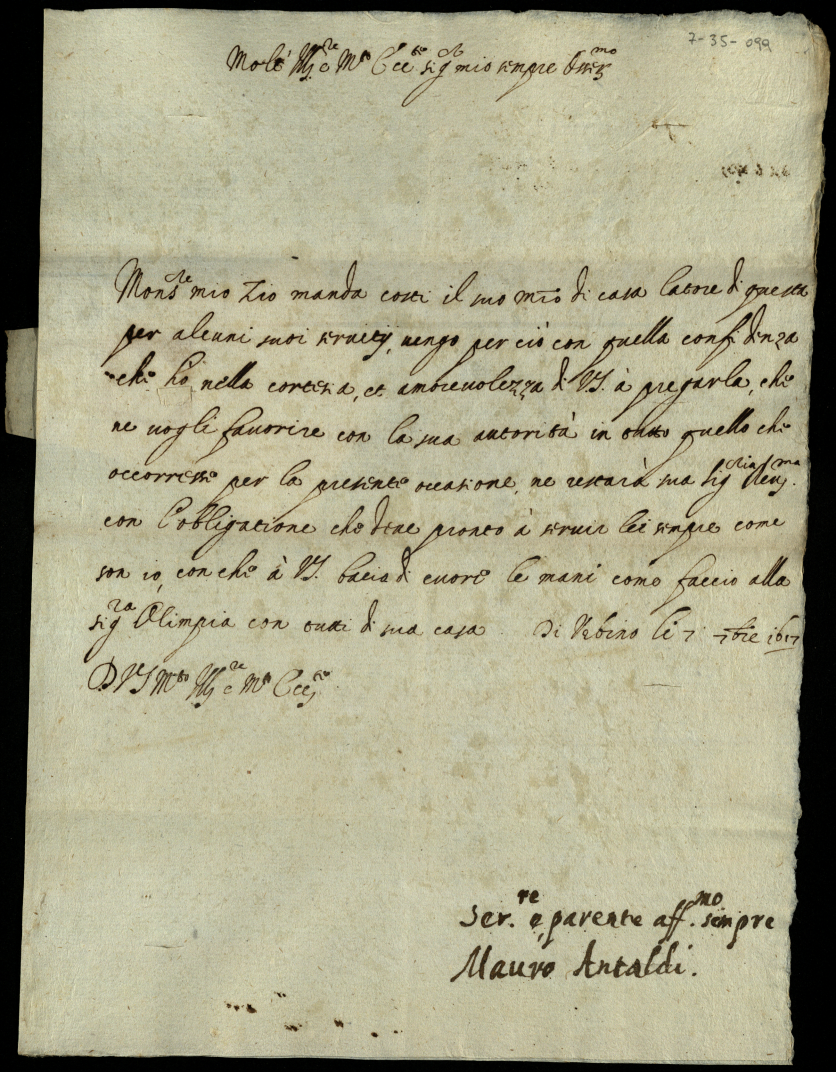 7-35-099
Molt' Ill.re e M.to Ecc.te sig.or mio sempre
Mons.re mio Zio manda costi il suo m.ro di casa latore di questa
per alcuni suoi seruitij, uengo per ciò con quella confidenza
che hò nella cortesia, et amoreuolezza di VS. à pregarla, che
ne uogli fauorire con la sua autorità in tutto quello che
occorresse per la presente occasione, ne restarà sua sig.ria Reu.ma
con l'obligatione che deue pronto à seruir lei sempre come
son io, con che à VS. bacio di cuore le mani come faccio alla
sig.ra Olimpia con tutti di sua casa Di Vrbino li 7 7bre 1617
D VS M.to Ill.re e M.to Ecc.te
Ser.re e parente aff.mo sempre
Mauro Antaldi.